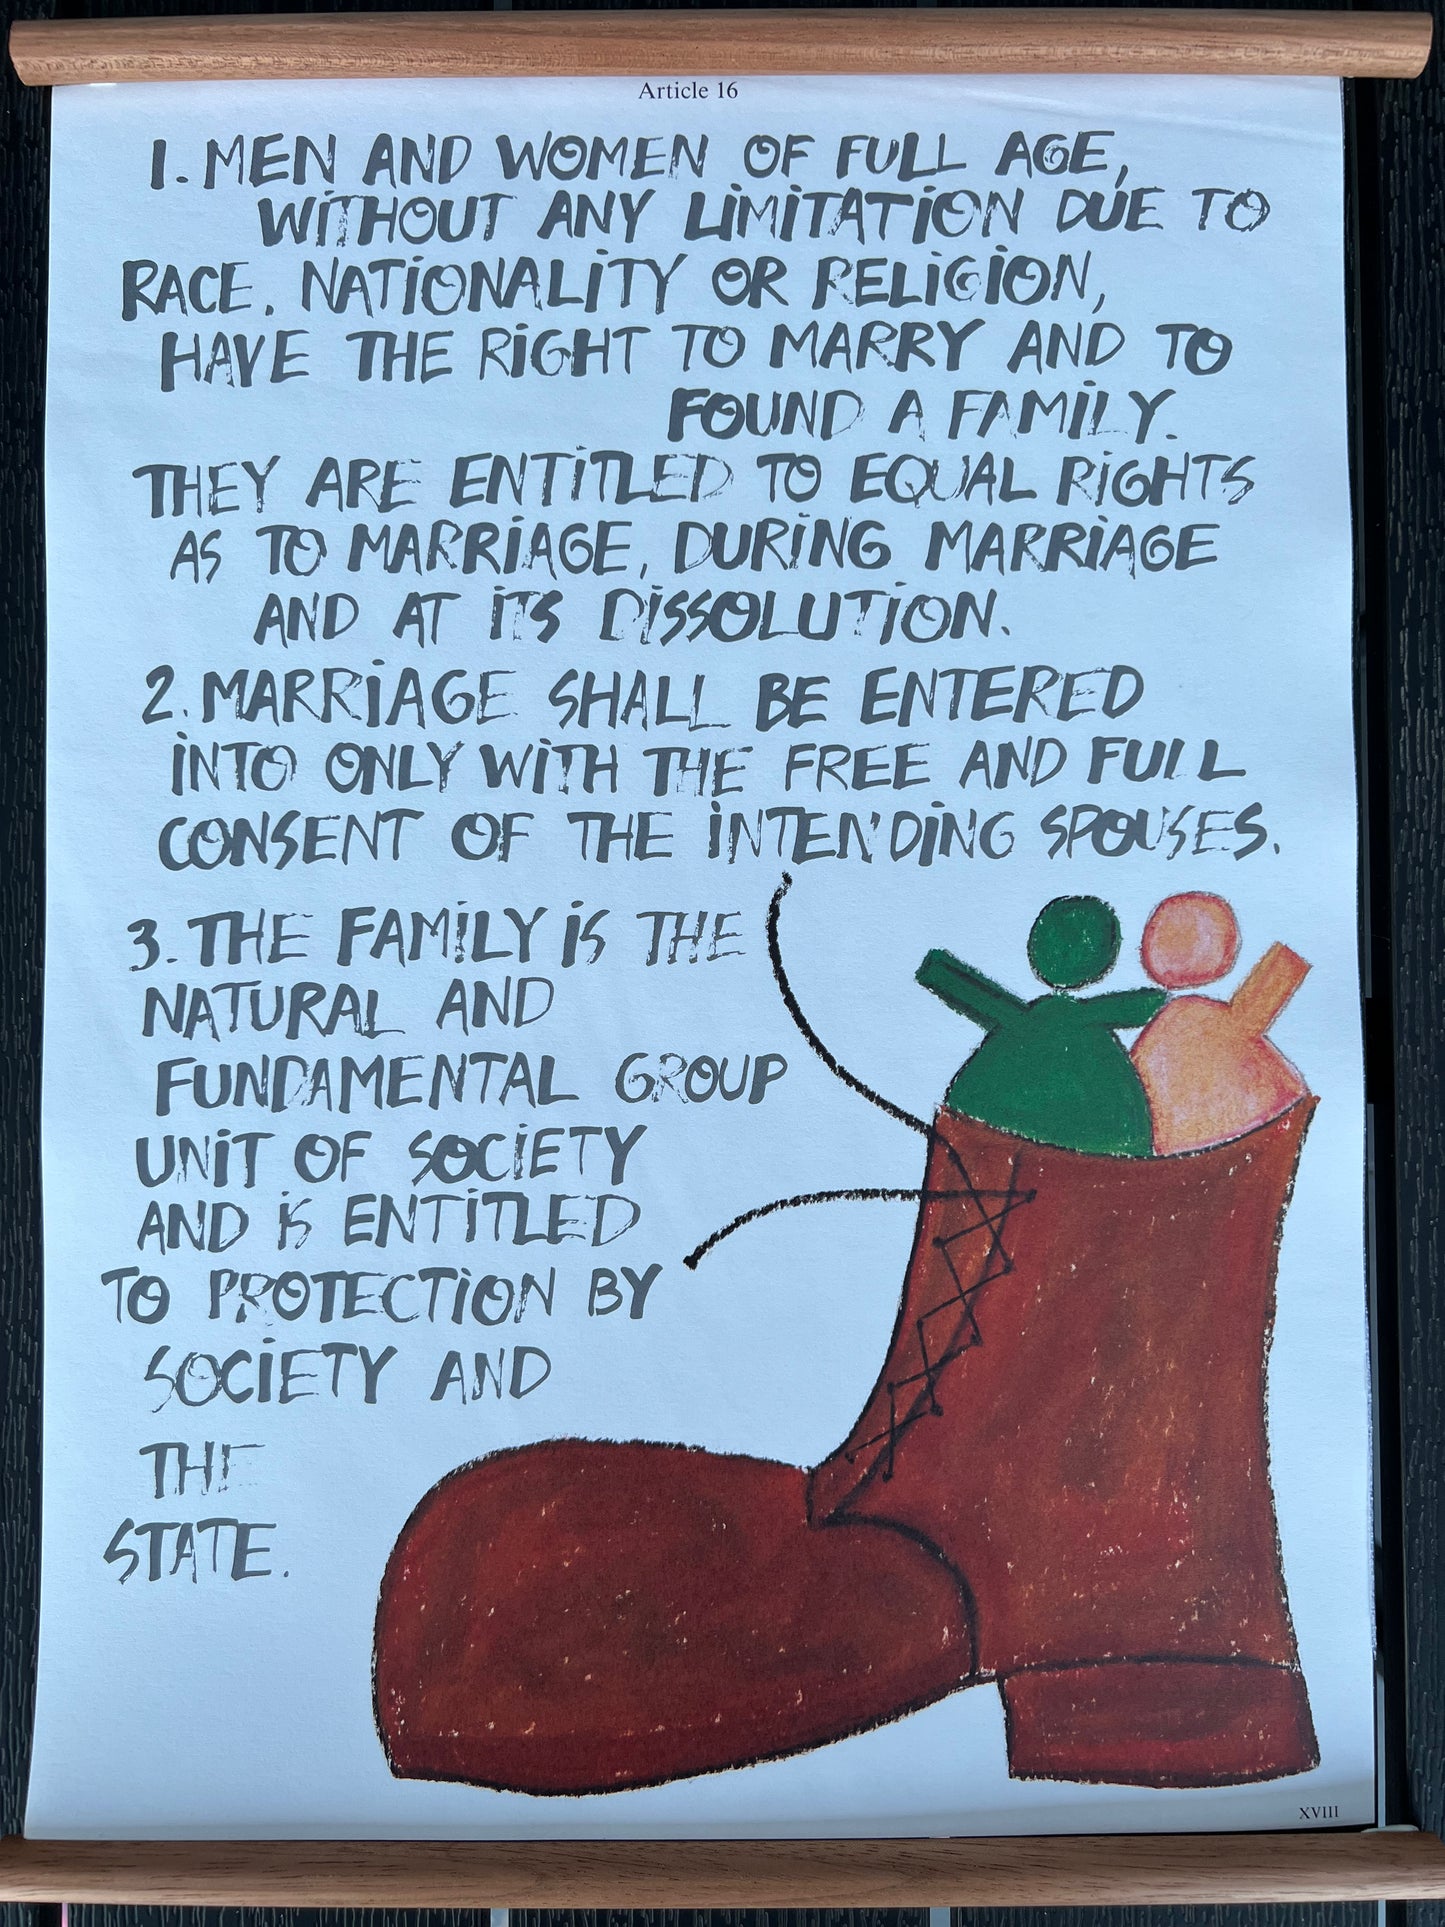 Article 16
1. MEN AND WOMEN OF FULL AGE,
WITHOUT ANY LIMITATION DUE TO
RACE, NATIONALITY OR RELIGION,
HAVE THE RIGHT TO MARRY AND TO
FOUND A FAMILY.
THEY ARE ENTITLED TO EQUAL RIGHTS
AS TO MARRIAGE, DURING MARRIAGE
AND AT ITS DISSOLUTION.
2. MARRIAGE SHALL BE ENTERED
INTO ONLY WITH THE FREE AND FULL
CONSENT OF THE INTENDING SPOUSES.
3. THE FAMILY IS THE
NATURAL AND
FUNDAMENTAL GROUP
UNIT OF SOCIETY
AND IS ENTITLED
TO PROTECTION BY
SOCIETY AND
THE
STATE.
XVIII